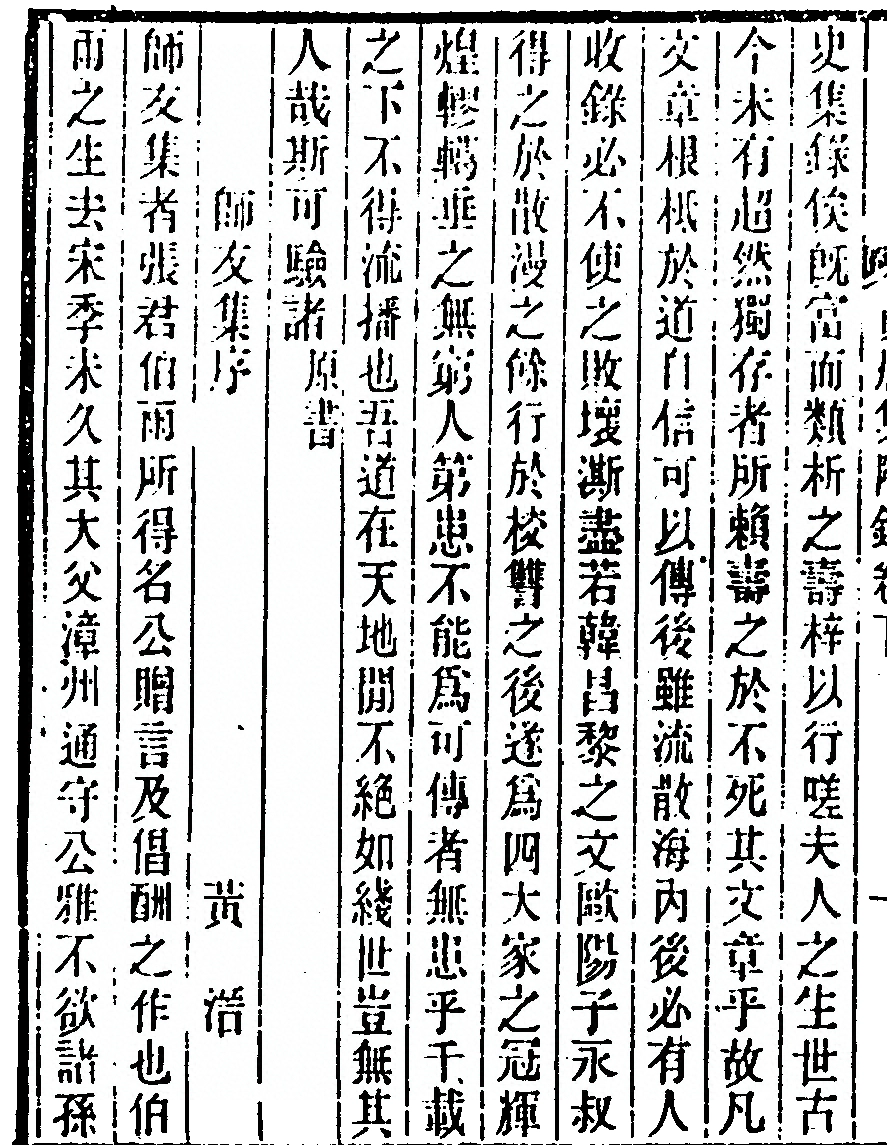 史集錄俟旣富而類析之壽梓以行嗟夫人之生世古
今未有超然獨存者所賴壽之於不死其文章乎故凡
文章根柢於道自信可以傳後雖流散海內後必有人
收錄必不使之敗壞澌盡若韓昌黎之文歐陽子永叔
得之於散漫之餘行於校讐之後遂爲四大家之冠輝
煌轇轕垂之無窮人第患不能爲可傳者無患乎千載
之下不得流播也吾道在天地閒不絕如綫世豈無其
人哉斯可驗諸 原書
師友集序 黃溍
師友集者張君伯雨所得名公贈言及倡酬之作也伯
雨之生去宋季未久其大父漳州通守公雅不欲諸孫